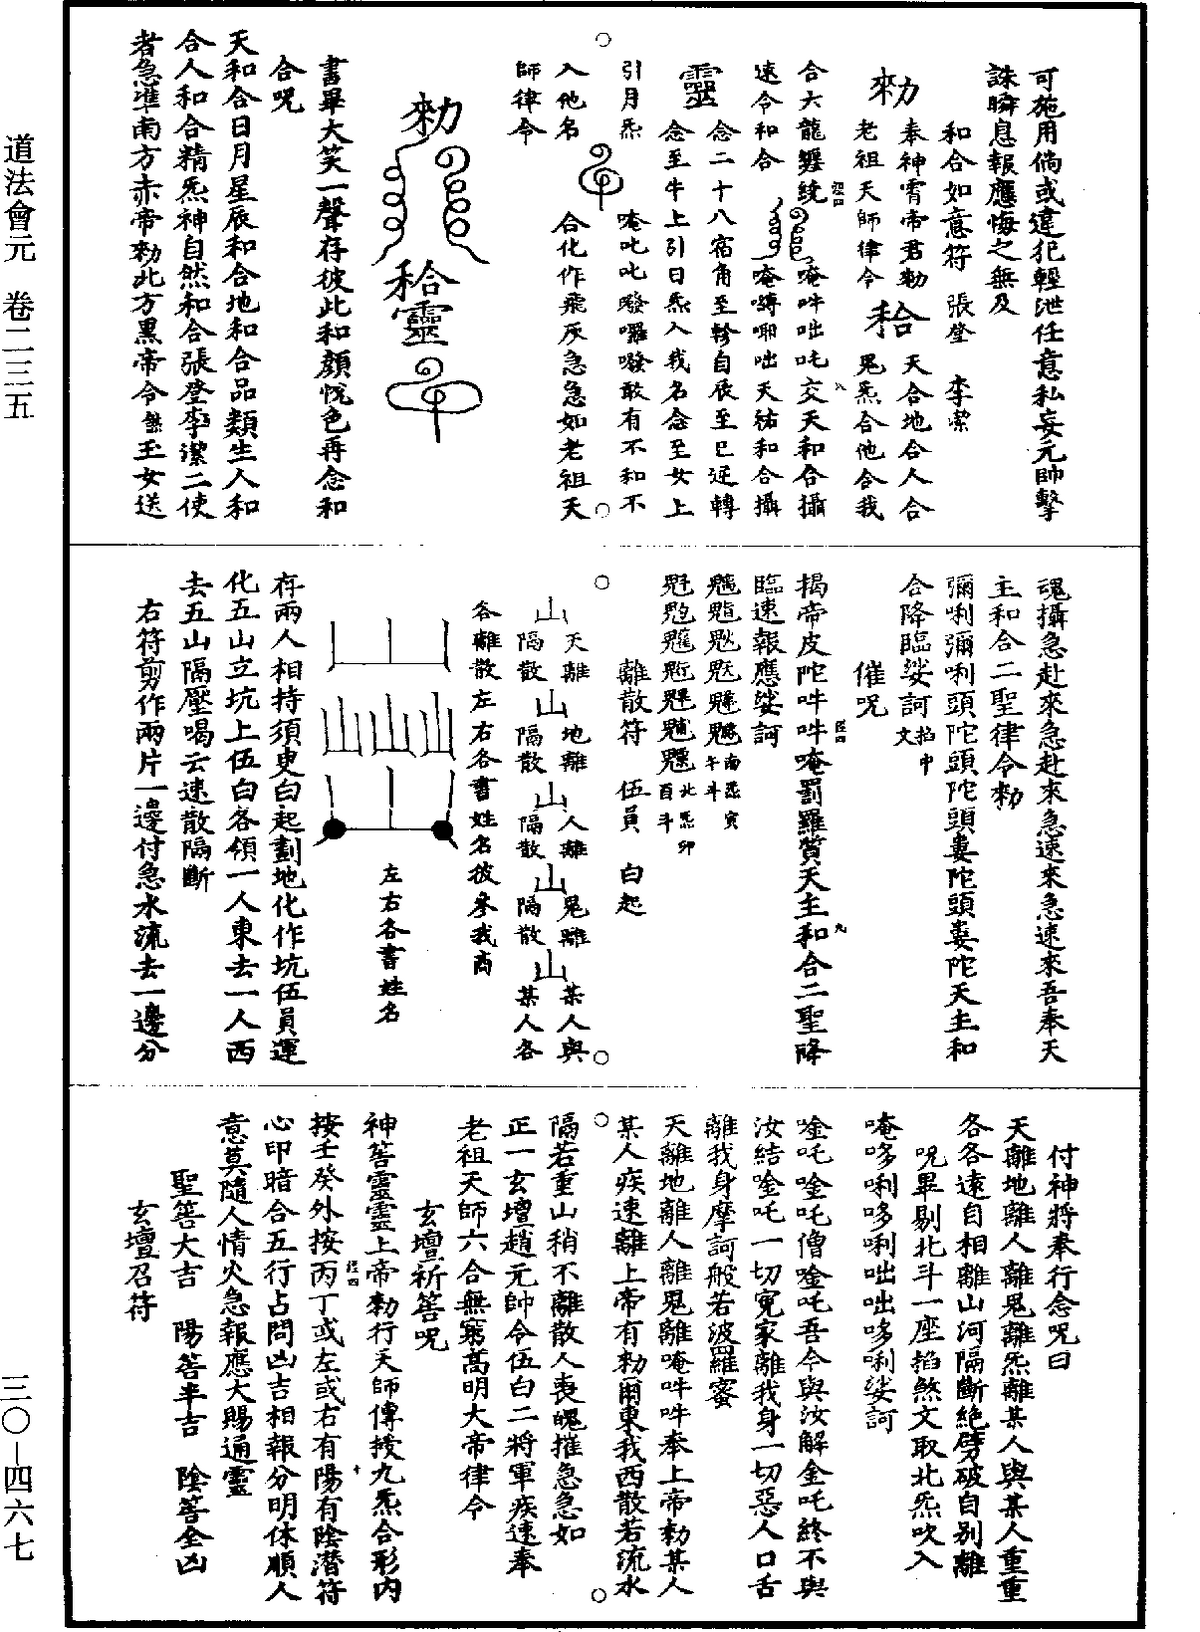 道法會元　卷二三五
三〇—四六七
可施用倘或違犯輕泄任意私妄元帥擊
誅瞬息報應悔之無及
和合如意符　張登　李潔
奉神霄帝君勑
老祖天師律令
勑
天合地合人合
鬼炁合他合我
合六龍纏繞
唵吽咄吒交天和合攝
速令和合
唵嚩㖿咄天祐和合攝
靈
念二十八宿角至軫自辰至巳逆轉
念至牛上引日炁入我名念至女上
引月炁
唵叱叱㘔囉㘔敢有不和不
入他名
合化作飛灰急急如老祖天
師律令
勑
靈
書畢大笑一聲存彼此和顔悅色再念和
合呪
天和合日月星辰和合地和合品類生人和
合人和合精炁神自然和合張登李潔二使
者急準南方赤帝勑北方黑帝令煞玉女送
魂攝急赴來急赴來急速來急速來吾奉天
主和合二聖律令勑
彌唎彌唎頭陀頭陀頭婁陀頭婁陀天主和
合降臨娑訶掐中文
催呪
揭帝皮陀吽吽唵罰羅質天主和合二聖降
臨速報應娑訶
南炁寅午斗
北炁卯酉斗
離散符　伍員　白起
山　天離　隔散
山　地離　隔散
山　人離　隔散
山　鬼離　隔散
山　某人與某人各
各離散左右各書姓名彼參我商
左右各書姓名
存兩人相持須臾白起劃地化作坑伍員運
化五山立坑上伍白各領一人東去一人西
去五山隔壓喝云速散隔斷
右符剪作兩片一邊付急水流去一邊分
付神將奉行念呪曰
天離地離人離鬼離炁離某人與某人重重
各各遠自相離山河隔斷絕劈破自別離
呪畢剔北斗一座掐煞文取北炁吹入
唵哆唎哆唎咄咄哆唎娑訶
唫吒唫吒僧唫吒吾今與汝解金吒終不與
汝結唫吒一切冤家離我身一切惡人口舌
離我身摩訶般若波羅蜜
天離地離人離鬼離唵吽吽奉上帝勑某人
某人疾速離上帝有勑爾東我西散若流水
隔若重山稍不離散人喪魄摧急急如
正一玄壇趙元帥令伍白二將軍疾速奉
老祖天師六合無窮高明大帝律令
玄壇祈筶呪
神筶靈靈上帝勑行天師傳授九炁合形內
按壬癸外按丙丁或左或右有陽有陰潛符
心印暗合五行占問凶吉相報分明休順人
意莫隨人情火急報應大賜通靈
聖筶大吉　陽筶半吉　陰筶全凶
玄壇召符